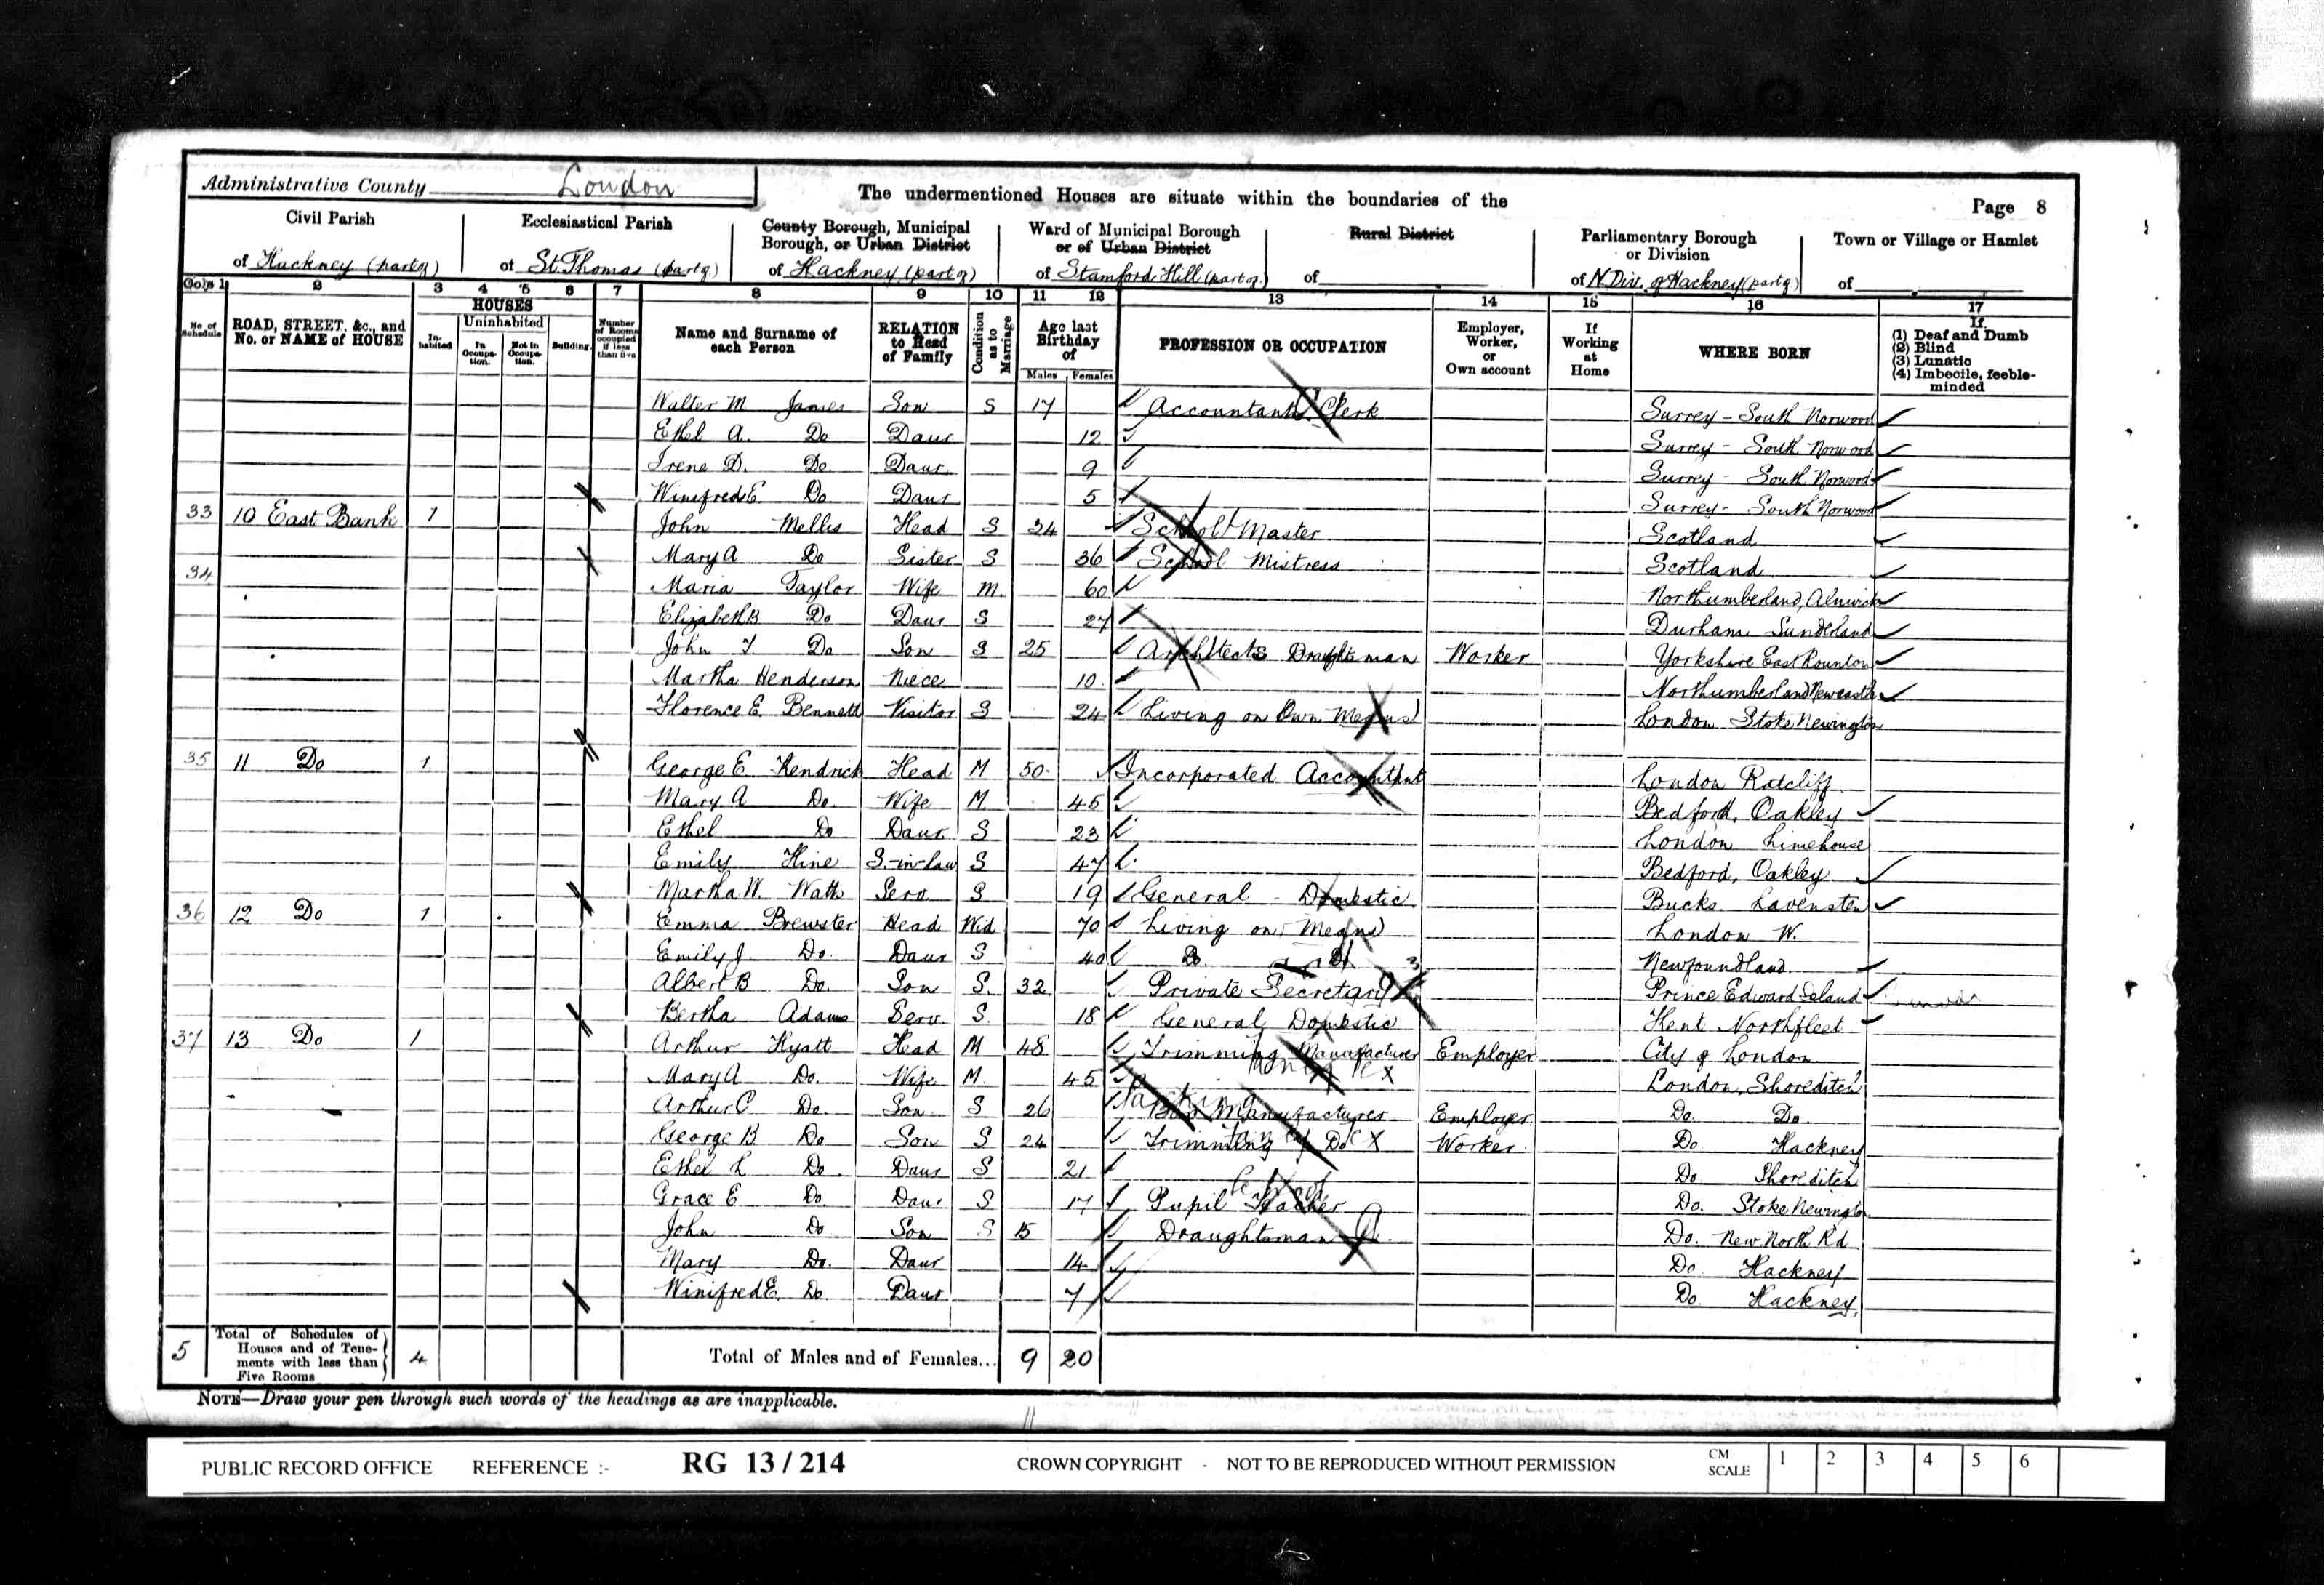 Administrative County London
The undermentioned Houses are situate within the boundaries of the
Page 8
Civil Parish of Hackney (part of)
Ecclesiastical Parish of St. Thomas (part of)
County Borough, Municipal Borough, or Urban District of Hackney (part of)
Ward of Municipal Borough or of Urban District of Stamford Hill (part of)
Rural District of
Parliamentary Borough or Division of N. Div. of Hackney (part of)
Town or Village or Hamlet of
Cols 1 2 3 4 5 6 7 8 9 10 11 12 13 14 15 16 17
No. of Schedule
ROAD, STREET, &c., and No. or NAME of HOUSE
HOUSES
In-habited
Uninhabited
In Occupa-tion.
Not in Occupa-tion.
Building.
Number of Rooms occupied if less than five
Name and Surname of each Person
RELATION to Head of Family
Condition as to Marriage
Age last Birthday of
Males Females
PROFESSION OR OCCUPATION
Employer, Worker, or Own account
If Working at Home
WHERE BORN
If
(1) Deaf and Dumb
(2) Blind
(3) Lunatic
(4) Imbecile, feeble-minded
Walter M James Son S 17 Accountants Clerk Surrey - South Norwood
Ethel A. Do Daur 12 Surrey - South Norwood
Irene D. Do Daur 9 Surrey - South Norwood
Winifred E Do Daur 5 Surrey - South Norwood
33 10 East Bank 1 John Mellis Head S 34 School Master Scotland
Mary A Do Sister S 36 School Mistress Scotland
34 Maria Taylor Wife M. 60 Northumberland, Alnwick
Elizabeth B Do Daur S 27 Durham Sunderland
John T Do Son S 25 Architects Draughtsman Worker Yorkshire East Rounton
Martha Henderson Niece 10 Northumberland Newcastle
Florence E. Bennett Visitor S 24 Living on Own Means London Stoke Newington
35 11 Do 1 George E. Kendrick Head M 50 Incorporated Accountant London Ratcliff
Mary A Do. Wife M 45 Bedford, Oakley
Ethel Do Daur S 23 London Limehouse
Emily Hine S.-in-law S 47 Bedford, Oakley
Martha W. Watts Serv. S 19 General Domestic Bucks
36 12 Do 1 Emma Brewster Head Wid 70 Living on Means London W.
Emily J Do. Daur S 40 Do Do Newfoundland
Albert B Do. Son S. 32 Private Secretary Prince Edward Island
Bertha Adams Serv. S. 18 General Domestic Kent Northfleet
37 13 Do 1 Arthur Hyatt Head M 48 Trimming Manufacturer Employer City of London
Mary A Do. Wife M. 45 London, Shoreditch
Arthur C Do. Son S 26 Manufacturer Employer Do. Do.
George B Do Son S 24 Trimming Do Worker Do Hackney
Ethel L Do. Daur S 21 Do Shoreditch
Grace E Do. Daur S 17 Pupil Teacher Do. Stoke Newington
John Do Son S 15 Draughtsman Do. New North Rd
Mary Do. Daur 14 Do Hackney
Winifred E. Do Daur 7 Do. Hackney
5 Total of Schedules of Houses and of Tene-ments with less than Five Rooms 4 Total of Males and of Females... 9 20
NOTE—Draw your pen through such words of the headings as are inapplicable.
PUBLIC RECORD OFFICE REFERENCE :- RG 13/214 CROWN COPYRIGHT - NOT TO BE REPRODUCED WITHOUT PERMISSION CM SCALE 1 2 3 4 5 6